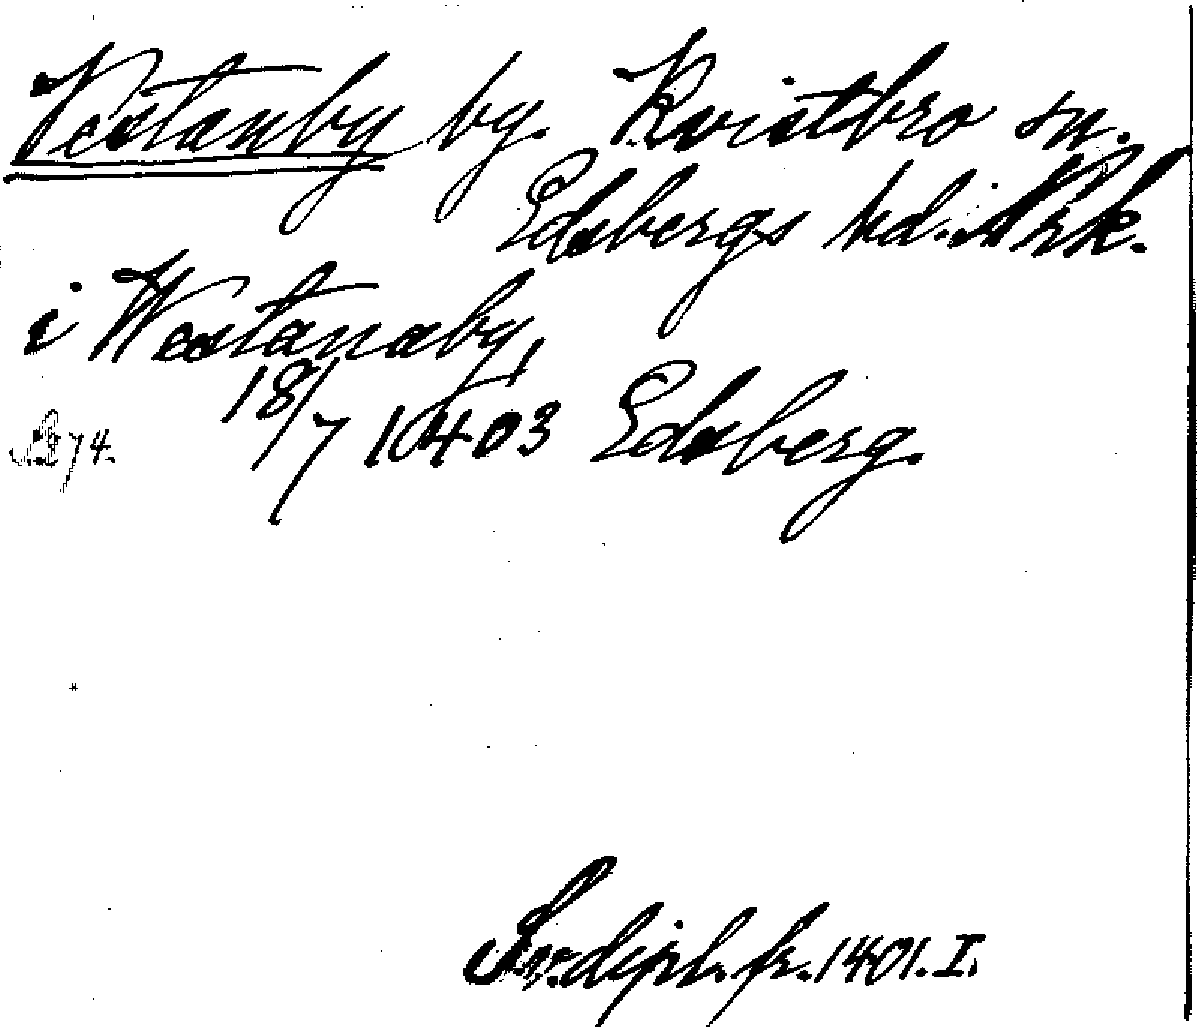 Vestanby by. Kvistbro sn.
Edsbergs hd. Nrk.
i Westanaby,
18/7 1403 Edsberg.
74.
Sv. dipl. fr. 1401. I.